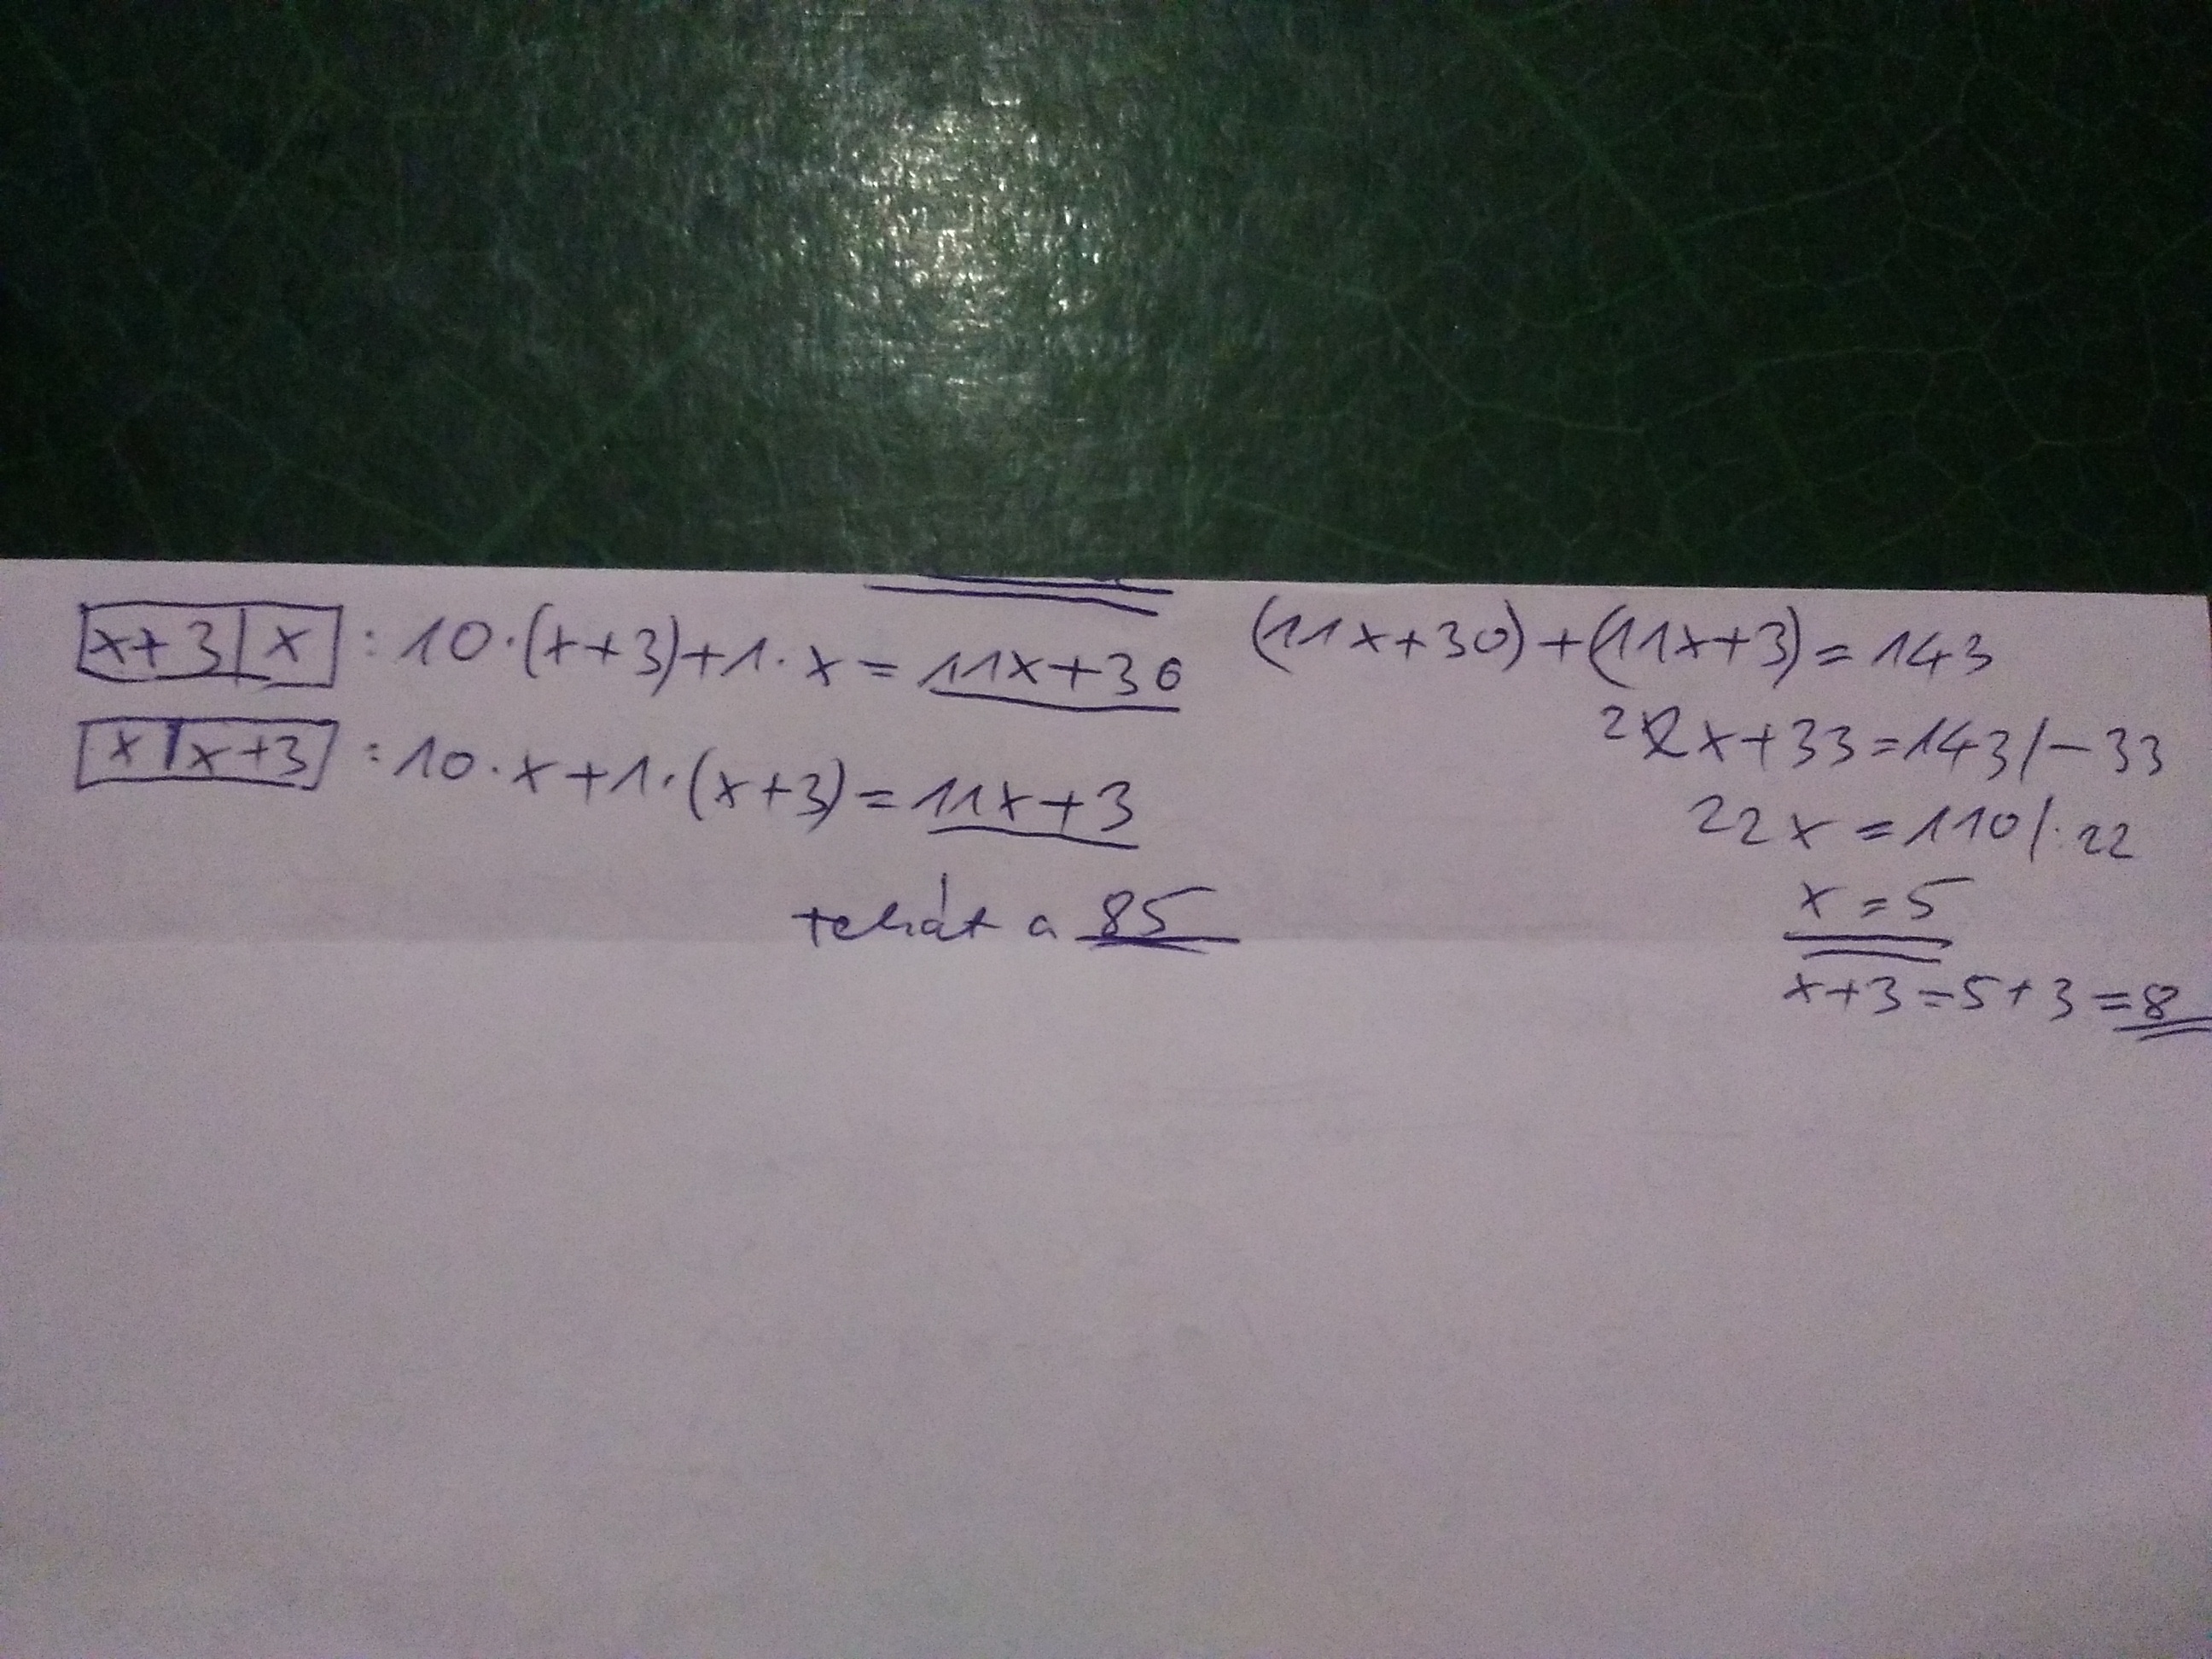 x+3|x : 10·(x+3)+1·x = 11x+30
x|x+3 : 10·x+1·(x+3) = 11x+3
tehát a 85
(11x+30)+(11x+3)=143
22x+33=143/-33
22x=110/:22
x=5
x+3=5+3=8